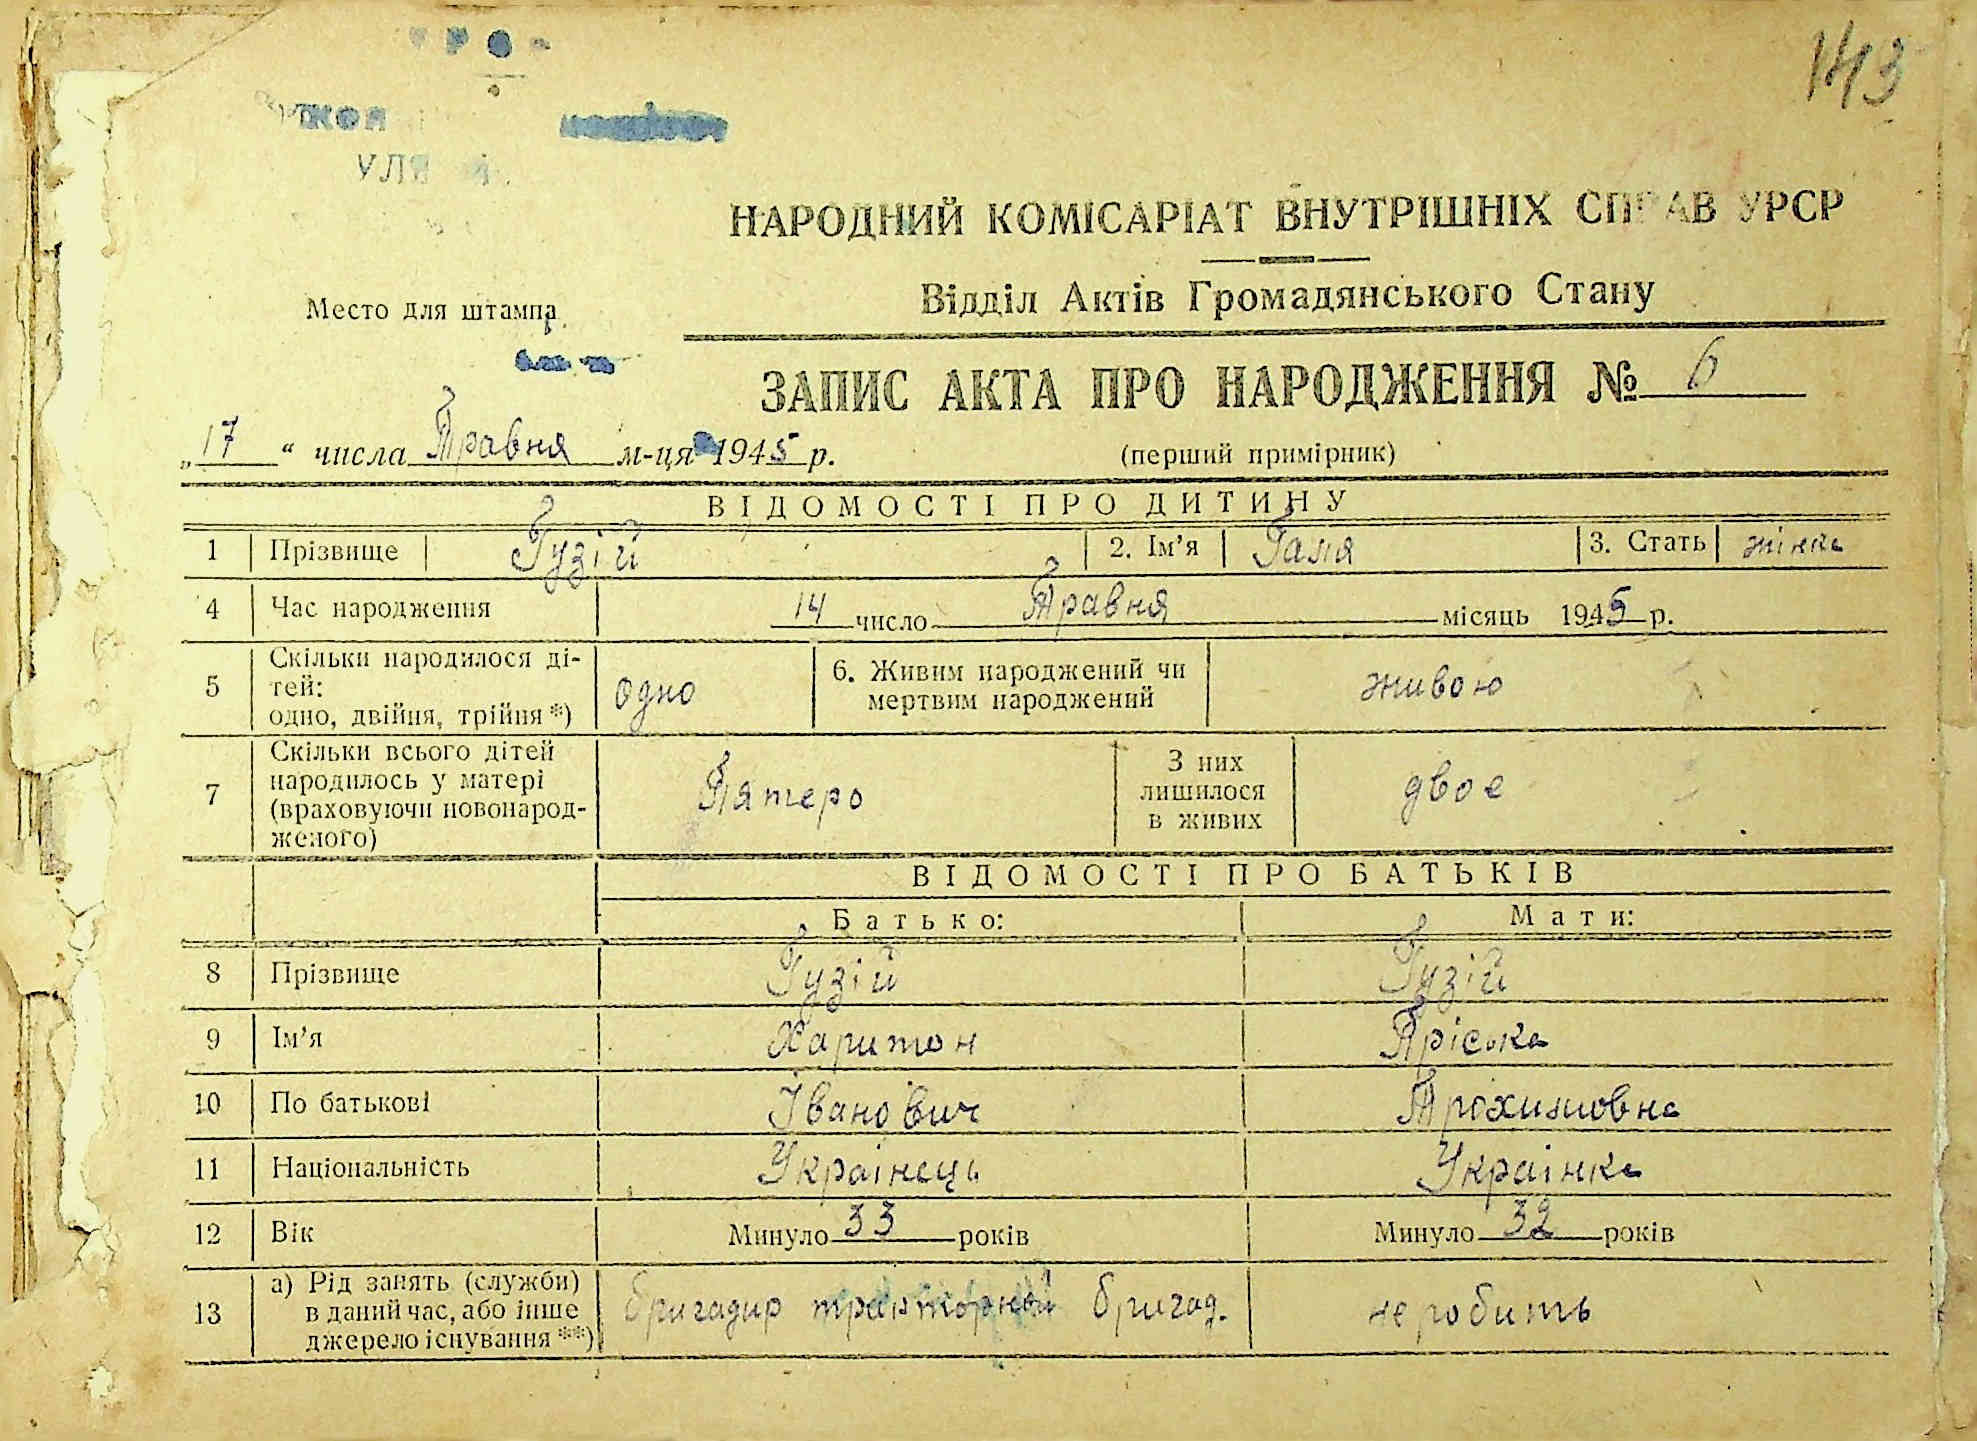 143
НАРОДНИЙ КОМІСАРІАТ ВНУТРІШНІХ СПРАВ УРСР
Відділ Актів Громадянського Стану
Место для штампа
ЗАПИС АКТА ПРО НАРОДЖЕННЯ № 6
„17“ числа Травня м-ця 1945 р.
(перший примірник)
ВІДОМОСТІ ПРО ДИТИНУ
1 Прізвище Гузій 2. Ім’я Галя 3. Стать жінка
4 Час народження 14 число Травня місяць 1945 р.
5 Скільки народилося ді-
тей:
одно, двійня, трійня *) одно 6. Живим народжений чи
мертвим народжений живою
7 Скільки всього дітей
народилось у матері
(враховуючи новонарод-
женого) Пятеро З них
лишилося
в живих двое
ВІДОМОСТІ ПРО БАТЬКІВ
Батько: Мати:
8 Прізвище Гузій Гузій
9 Ім’я Харитон Пріська
10 По батькові Іванович Трохимовна
11 Національність Украінець Украінка
12 Вік Минуло 33 років Минуло 32 років
13 а) Рід занять (служби)
в даний час, або інше
джерело існування **) бригадир тракторной бригад. не робить